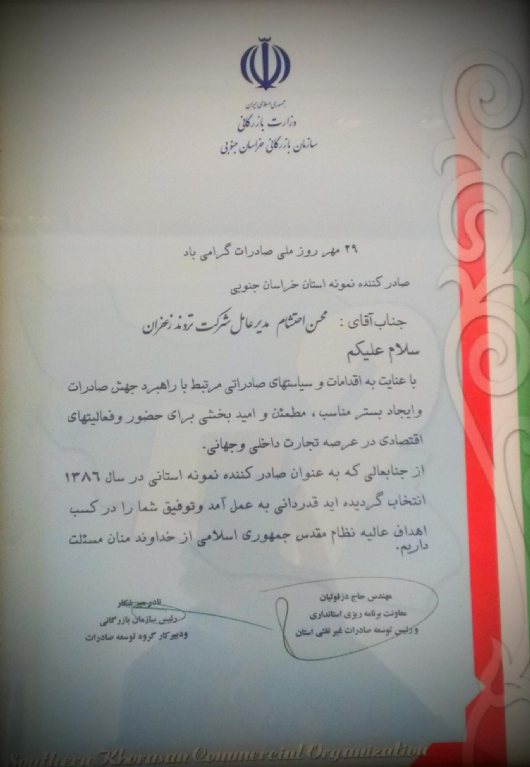 جمهوری اسلامی ایران
وزارت بازرگانی
سازمان بازرگانی خراسان جنوبی
۲۹ مهر روز ملی صادرات گرامی باد
صادر کننده نمونه استان خراسان جنوبی
جناب آقای : محسن احتشام مدیرعامل شرکت تروند زعفران
سلام علیکم
با عنایت به اقدامات و سیاستهای صادراتی مرتبط با راهبرد جهش صادرات
وایجاد بستر مناسب ، مطمئن و امید بخشی برای حضور وفعالیتهای
اقتصادی در عرصه تجارت داخلی وجهانی.
از جنابعالی که به عنوان صادر کننده نمونه استانی در سال ۱۳۸۶
انتخاب گردیده اید قدردانی به عمل آمد وتوفیق شما را در کسب
اهداف عالیه نظام مقدس جمهوری اسلامی از خداوند منان مسئلت
داریم.
مهندس حاج دزفولیان
معاونت برنامه ریزی استانداری
و رئیس توسعه صادرات غیر نفتی استان
نادر میرشکار
رئیس سازمان بازرگانی
ودبیرکار گروه توسعه صادرات
Southern Khorasan Commercial Organization